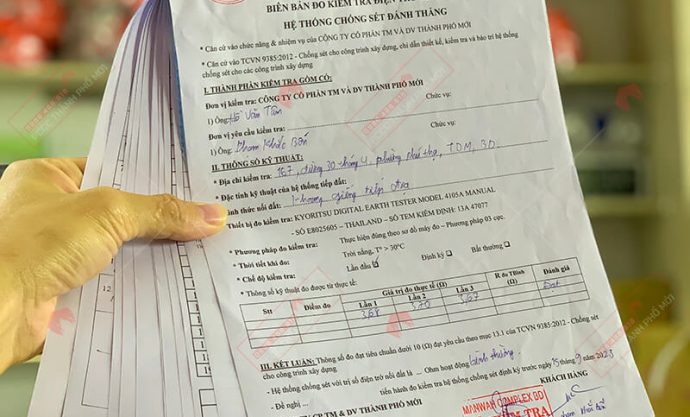 BIÊN BẢN ĐO KIỂM TRA ĐIỆN
HỆ THỐNG CHỐNG SÉT ĐÁNH THẲNG
* Căn cứ vào chức năng & nhiệm vụ của CÔNG TY CỔ PHẦN TM VÀ DV THÀNH PHỐ MỚI
* Căn cứ vào TCVN 9385:2012 - Chống sét cho công trình xây dựng, chỉ dẫn thiết kế, kiểm tra và bảo trì hệ thống
chống sét cho các công trình xây dựng
I. THÀNH PHẦN KIỂM TRA GỒM CÓ:
Đơn vị kiểm tra: CÔNG TY CỔ PHẦN TM VÀ DV THÀNH PHỐ MỚI
1) Ông: Hồ Văn Tân Chức vụ:
Đơn vị yêu cầu kiểm tra:
1) Ông: Phạm Khắc Chức vụ:
II. THÔNG SỐ KỸ THUẬT:
* Địa chỉ kiểm tra: 167, đường 30 tháng 4, phường phú thọ, TDM, BD
* Đặc tính kỹ thuật của hệ thống tiếp đất:
Hình thức nối đất: Khoang giếng tiếp địa
Thiết bị đo kiểm tra: KYORITSU DIGITAL EARTH TESTER MODEL 4105A MANUAL
- SỐ E8025605 – THAILAND – SỐ TEM KIỂM ĐỊNH: 13A 47077
* Phương pháp đo kiểm tra: Thực hiện đúng theo sơ đồ máy đo – Phương pháp 03 cọc.
* Thời tiết khi đo: Trời nắng, T° > 30°C
* Chế độ kiểm tra: Lần đầu Định kỳ Bất thường
* Thông số kỹ thuật đo được từ thực tế:
Stt Điểm đo Giá trị đo thực tế (Ω) R đo TBình (Ω) Đánh giá
Lần 1 Lần 2 Lần 3
3,68 3,70 3,67 Đạt
III. KẾT LUẬN: Thông số đo đạt tiêu chuẩn dưới 10 (Ω) đạt yêu cầu theo mục 13.1 của TCVN 9385:2012 - Chống sét
cho công trình xây dựng
- Hệ thống chống sét với trị số điện trở nối đất là ... Ohm hoạt động bình thường
- Đề nghị ... tiến hành đo kiểm tra hệ thống chống sét định kỳ trước ngày 15 9 / 2023
CP TM & DV THÀNH PHỐ MỚI KHÁCH HÀNG
MANWAH COMPLEX BD
KIỂM TRA
THÀNH PHỐ MỚI